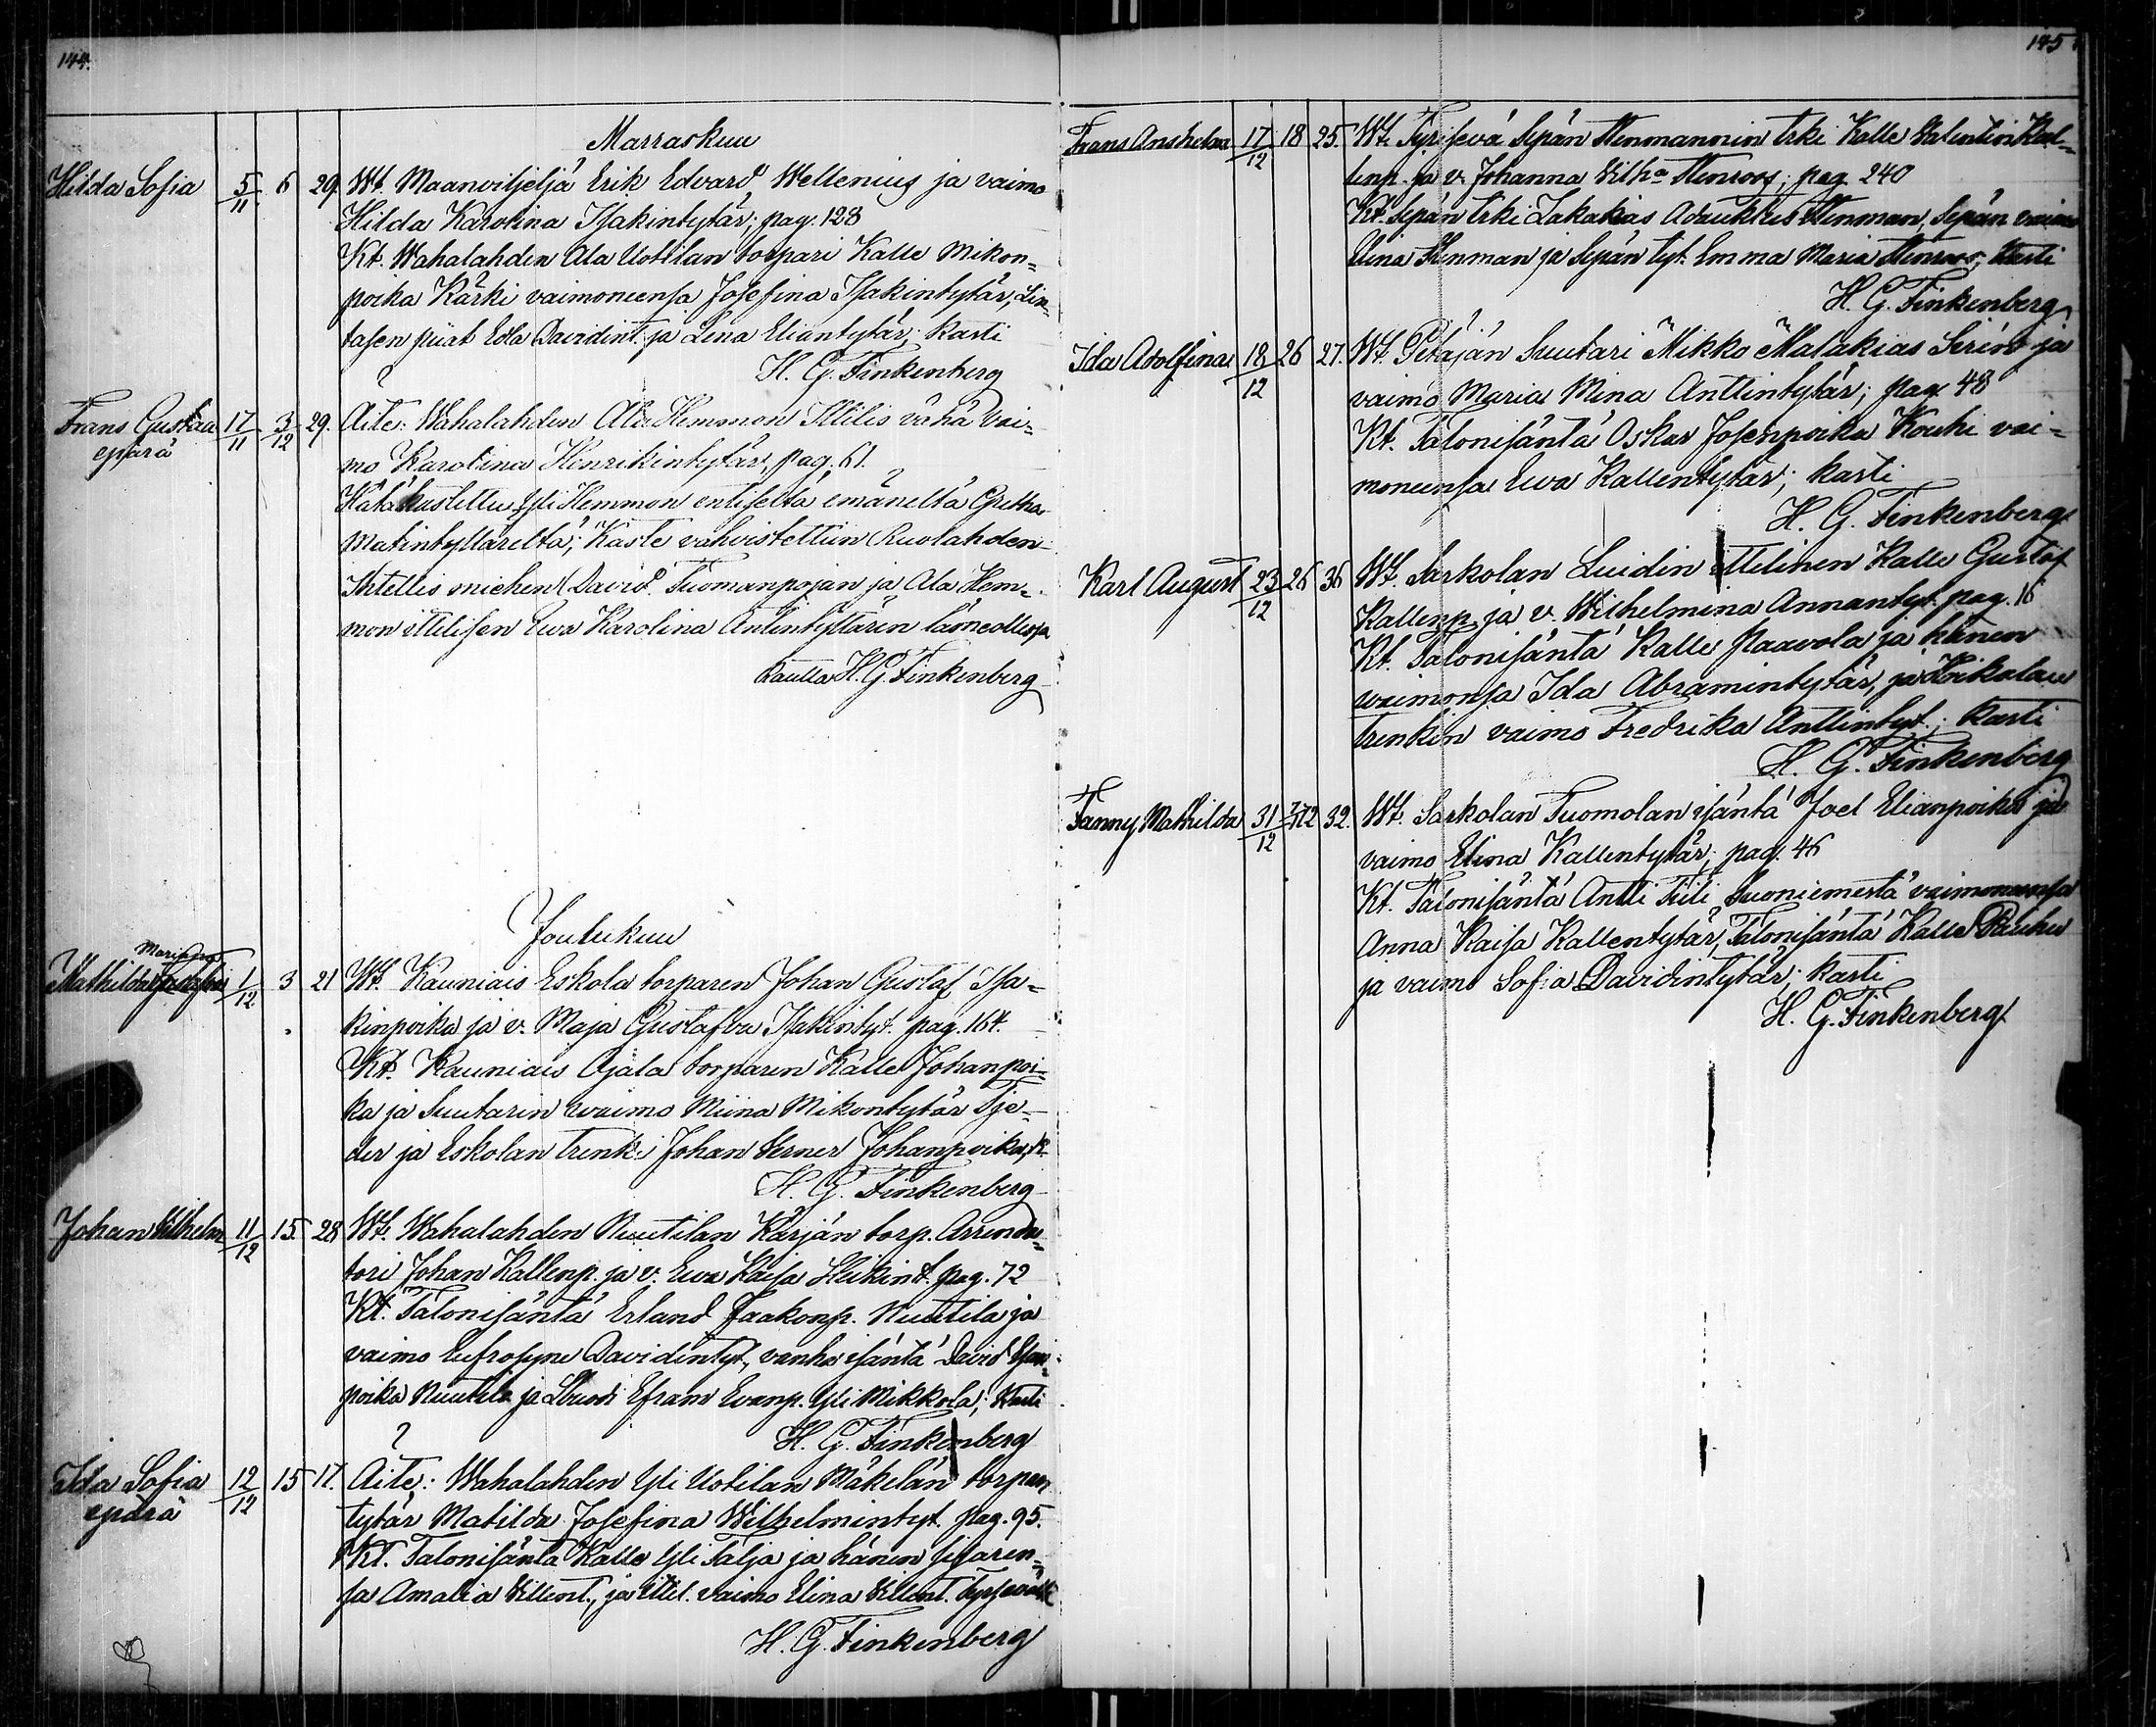 144.
Marraskuu
Hilda Sofia 5/11 6 29. Wt. Maanviljeljä Erik Edvard Wellenius ja vaimo
Hilda Karolina Isakintytär; pag. 128
Kt. Wahalahden Ala Uotilan torpari Kalle Mikon=
poika Kärki vaimoneensa Josefina Isakintytär, Lin=
tasen piiat Eda Davidint. ja Lena Eliantytär; kasti
H. G. Finkenberg
Frans Gustaa 17/11 3/12 29. Äite: Wahalahden Ala Hemmon Ittilis vähä vai=
epärä mo Karolina Henrikintytär, pag. 61.
Hätäkastettu Yli Hemmon entiseltä emäneltä Gretha
Matintyttäreltä; Kaste vahvistettiin Ruolahden
Ittellis miehen David Tuomanpojan ja Ala Hem=
mon ittelisen Ewa Karolina Antintyttären läsneollessa
kautta H. G. Finkenberg
Joulukuu
Maria
Mathilda 1/12 3 21 Wt. Kauniais Eskola torparen Johan Gustaf Isa=
kinpoika ja v. Maja Gustafva Isakintyt. pag. 164.
Kt. Kauniais Ojala torparen Kalle Johanpoi=
ka ja Suutarin waimo Miina Mikontytär Tje=
der ja Eskolan trenki Johan Verner Johanpoika, k.
H. G. Finkenberg
Johan Vilhelm 11/12 15. 28 Wt. Wahalahden Nuutilan Kärjän torp. Arrenda=
tori Johan Kallenp. ja v. Ewa Kaisa Heikint. pag. 72
Kt. Talonisäntä Erland Jaakonp. Nuutila ja
vaimo Eufrosyne Davidintyt., vanha isäntä David
poika Nuutila ja Efram Evanp. Yli Mikkola; Kasti
H. G. Finkenberg
Ida Sofia 12/12 15 17. Äite: Wahalahden Yli Uotilan Mäkelän torpan
epärä tytär Matilda Josefina Wilhelmintyt. pag. 95.
Kt. Talonisäntä Kalle Yli Talja ja hänen sisaren=
sa Amalia Villent., ja ittel. vaimo Elina Villent.
H. G. Finkenberg
145
Frans Anshelm 17/12 18 25. Wt. Tyrisevä Sepän Stenmannin trki Kalle Valentin Kal=
lenp. ja v. Johanna Vilha Stenroos; pag. 240
Kt. Sepän trki Zakakias Adauktus Stenman, Sepän vaimo
Elina Stenman ja Sepän tyt. Emma Maria Stenroos; kasti
H. G. Finkenberg
Ida Adolfina 18/12 26 27. Wt. Petäjän Suutari Mikko Malakias Serén ja
vaimo Maria Mina Anttintytär; pag. 48
Kt. Talonisäntä Oskar Josenpoika Kouhi vai=
moneensa Ewa Kallentytär; kasti
H. G. Finkenberg
Karl August 23/12 26 36 Wt. Sarkolan Luidin ittelinen Kalle Gustaf
Kallenp. ja v. Wilhelmina Annantyt. pag. 16
Kt. Talonisäntä Kalle Paavola ja hänen
waimonsa Ida Abramintytär, ja Koikalan
trenkin vaimo Fredrika Anttintyt.; kasti
H. G. Finkenberg
Fanny Mathilda 31/12 32. Wt. Sarkolan Tuomolan isäntä Joel Elianpoika ja
vaimo Elina Kallentytär; pag. 46
Kt. Talonisäntä Antti Tiili Suoniemestä vaimoneensa
Anna Kaisa Kallentytär, Talonisäntä Kalle
ja vaimo Sofia Davidintytär; kasti
H. G. Finkenberg